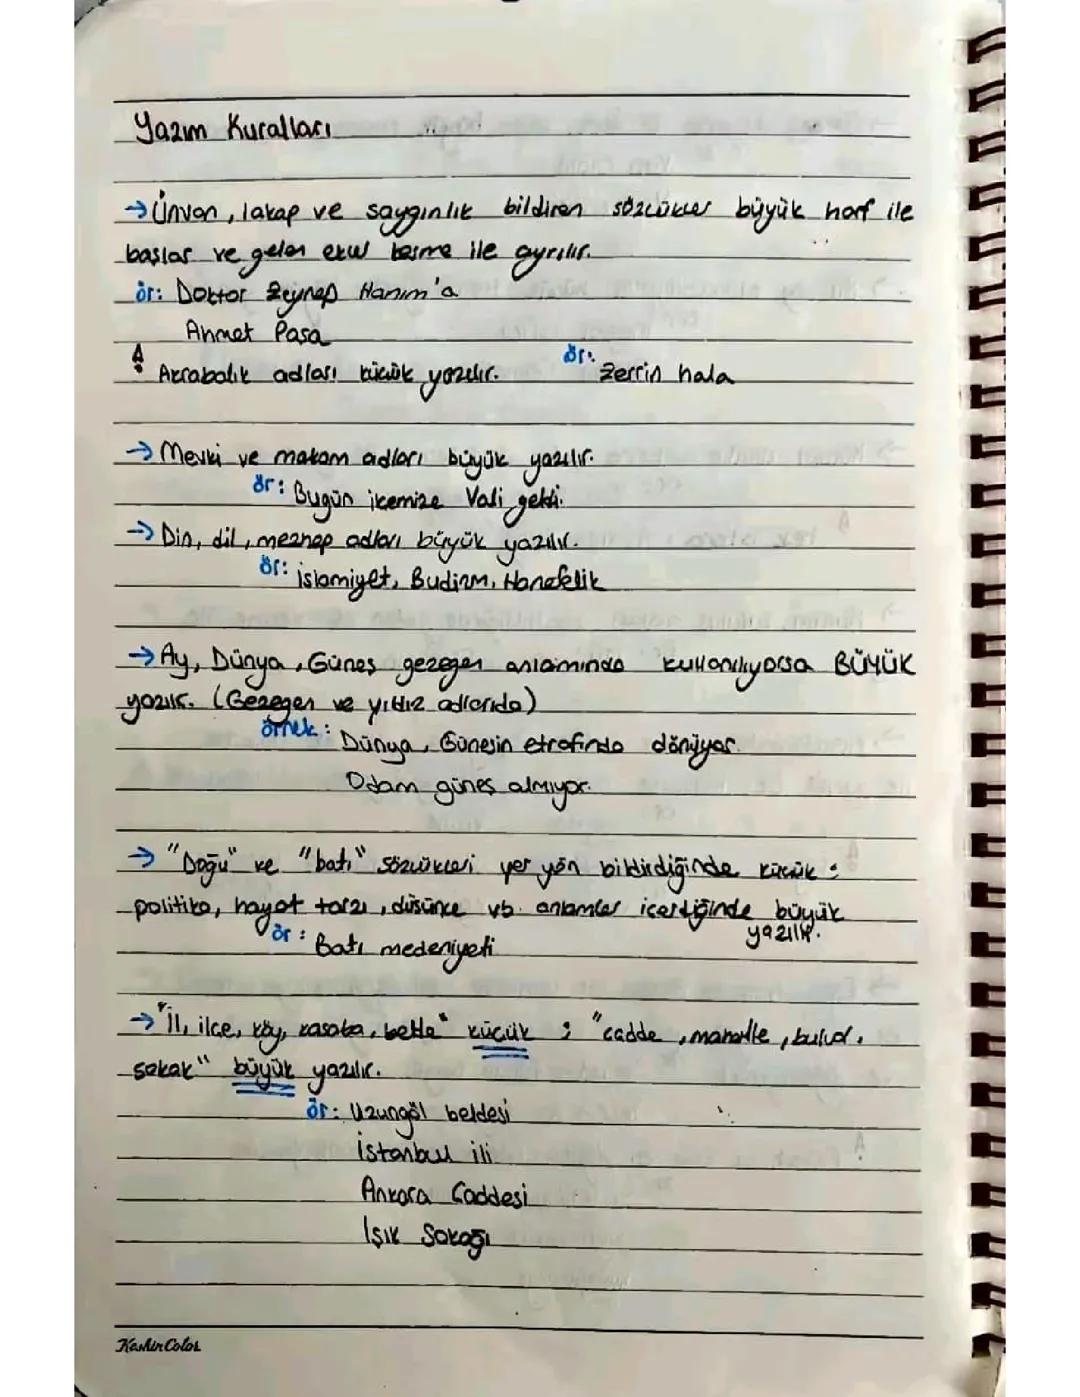 Yazım Kuralları
→ Ünvan, lakap ve saygınlık bildiren sözcükler büyük harf ile
başlar ve gelen ekler kesme ile ayrılır.
ör: Doktor Zeynep Hanım'a
Ahmet Paşa
! Akrabalık adları küçük yazılır. ör: Zerrin hala
→ Mevki ve makam adları büyük yazılır.
ör: Bugün ilçemize Vali geldi.
→ Din, dil, mezhep adları büyük yazılır.
ör: İslamiyet, Budizm, Hanefilik
→ Ay, Dünya, Güneş gezegen anlamında kullanılıyorsa BÜYÜK
yazılır. (Gezegen ve yıldız adlarıda)
örnek: Dünya, Güneşin etrafında dönüyor.
Odam güneş almıyor.
→ "Doğu" ve "batı" sözcükleri yer yön bildirdiğinde küçük;
politika, hayat tarzı, düşünce vb. anlamlar içerdiğinde büyük
yazılır.
ör: Batı medeniyeti
→ "İl, ilçe, köy, kasaba, belde" küçük ; "cadde, mahalle, bulvar,
sokak" büyük yazılır.
ör: Uzungöl beldesi
İstanbul ili
Ankara Caddesi
Işık Sokağı
KashinColor